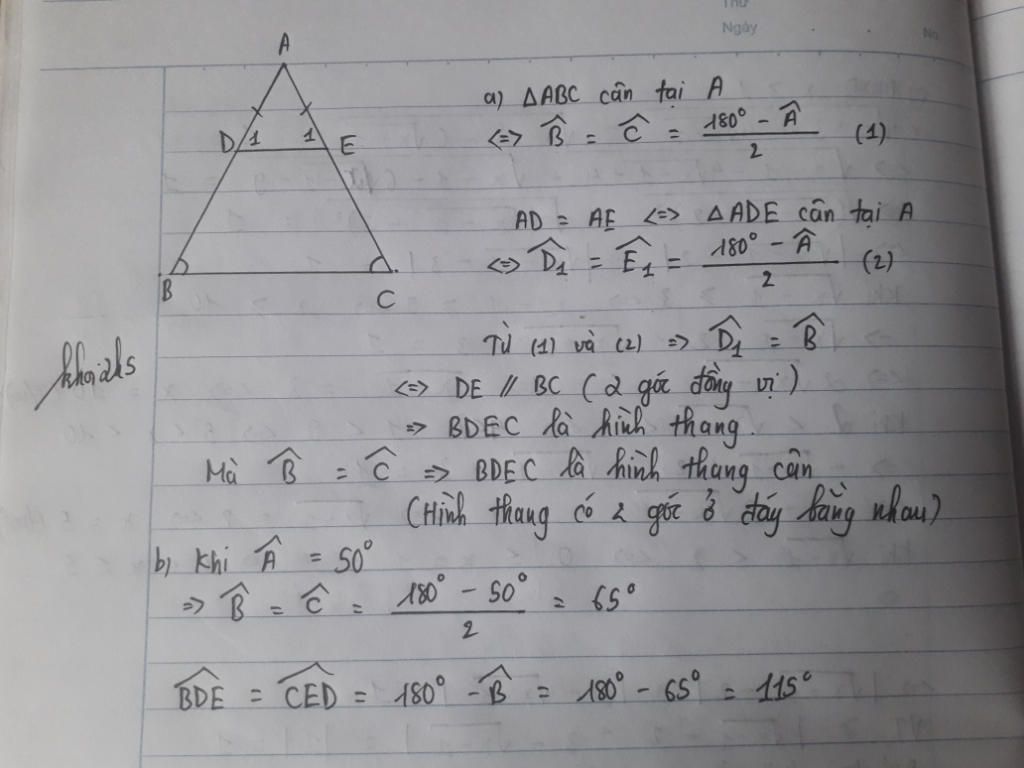 Thứ
Ngày
No
A
D 1 1 E
B C
a) ΔABC cân tại A
<=> B̂ = Ĉ = (180° - Â)/2 (1)
AD = AE <=> ΔADE cân tại A
<=> D̂₁ = Ê₁ = (180° - Â)/2 (2)
Từ (1) và (2) => D̂₁ = B̂
<=> DE // BC (2 góc đồng vị)
=> BDEC là hình thang.
Mà B̂ = Ĉ => BDEC là hình thang cân
(Hình thang có 2 góc ở đáy bằng nhau)
b) Khi Â = 50°
=> B̂ = Ĉ = (180° - 50°)/2 = 65°
BDE = CED = 180° - B̂ = 180° - 65° = 115°